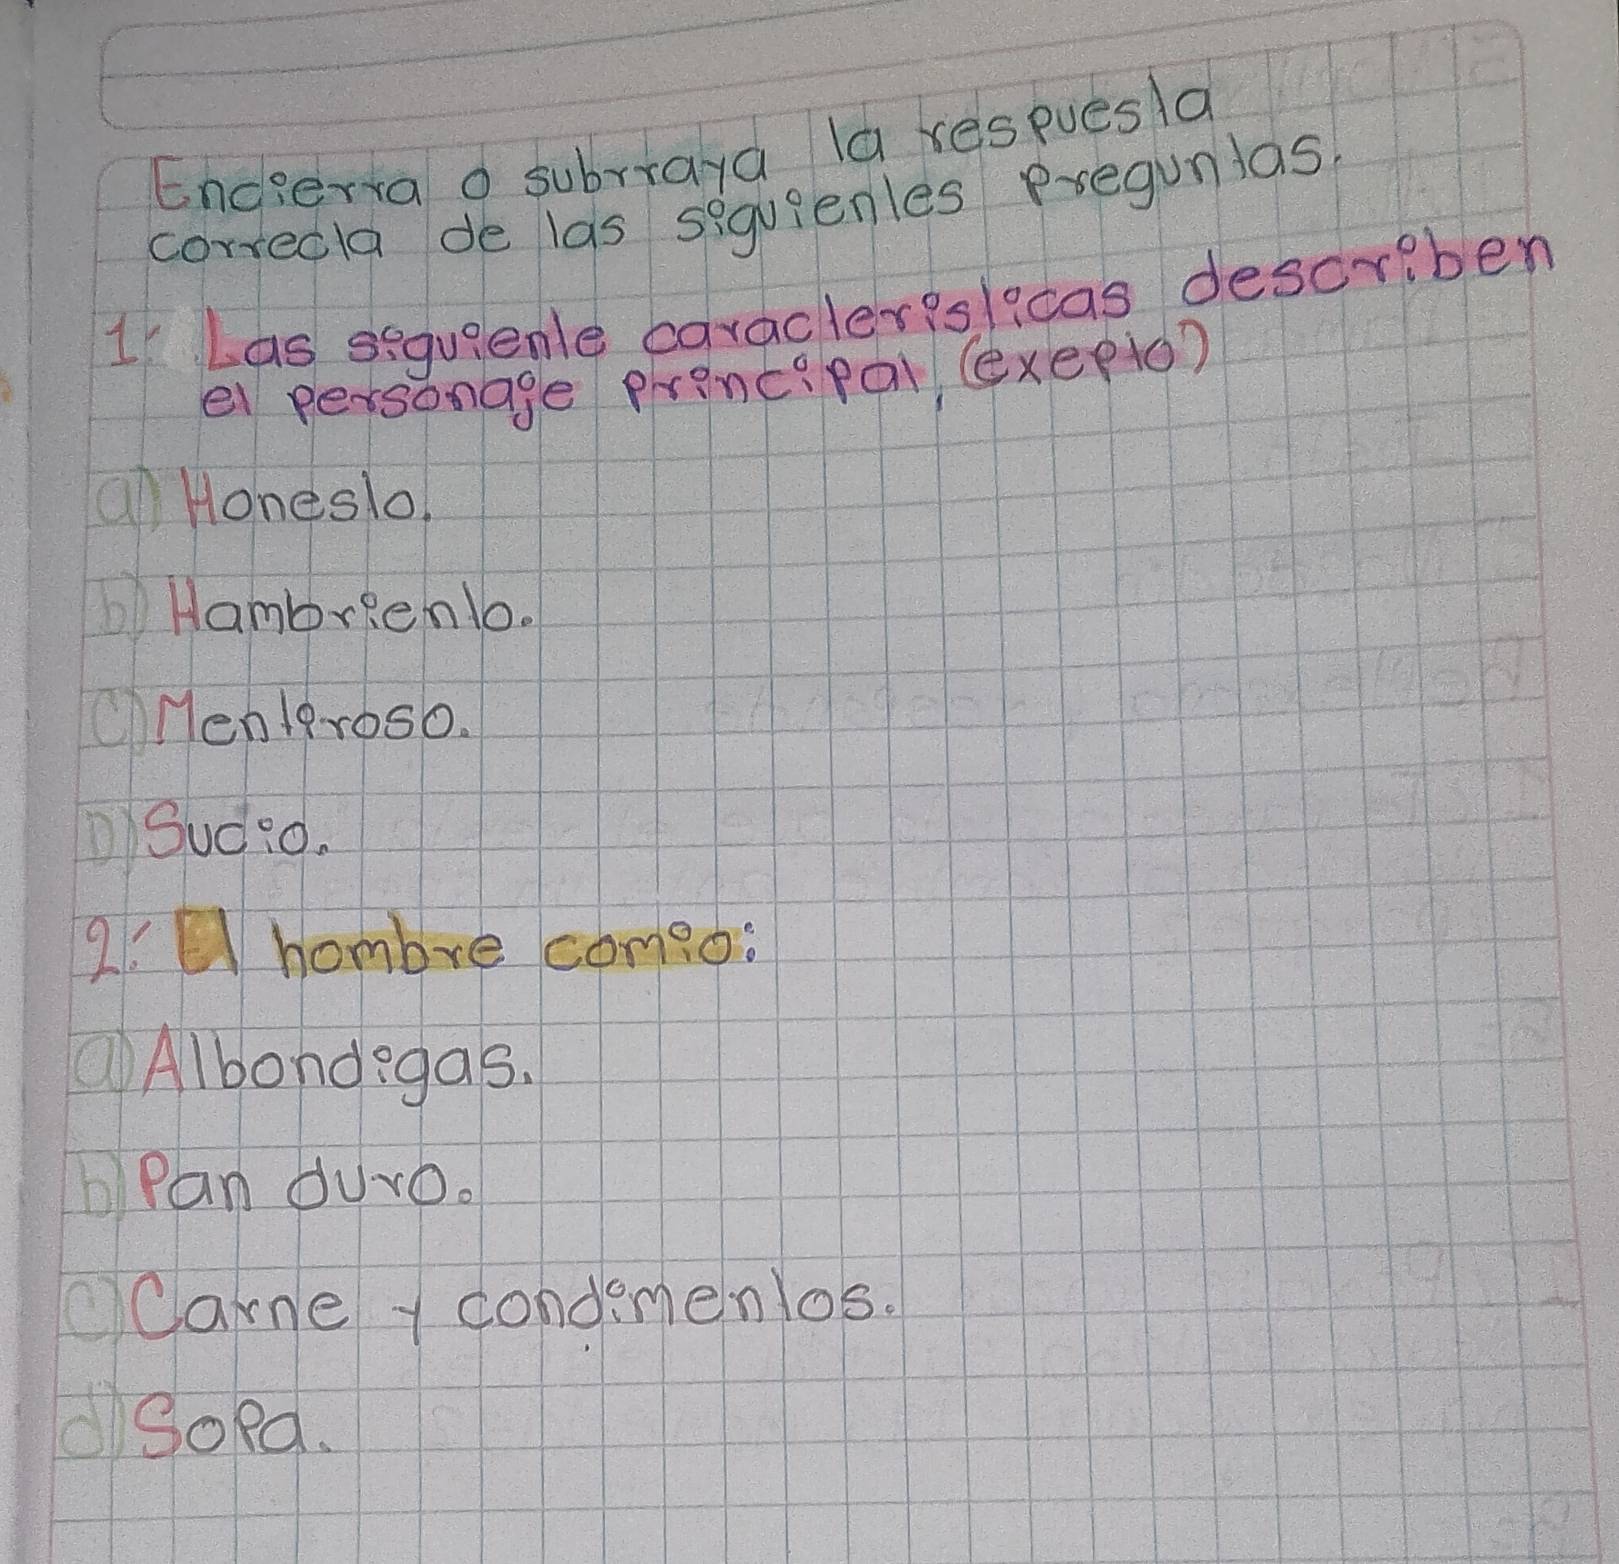 Encierra o subrraya la respuesta
correcta de las siguientes preguntas.
1. Las siguiente caracteristicas describen
el personaje principal, (exepto)
a) Honesto.
b) Hambriento.
c) Mentiroso.
D) Sucio.
2. El hombre comio:
a) Albondigas.
b) Pan duro.
c) Carne y condimentos.
d) Sopa.